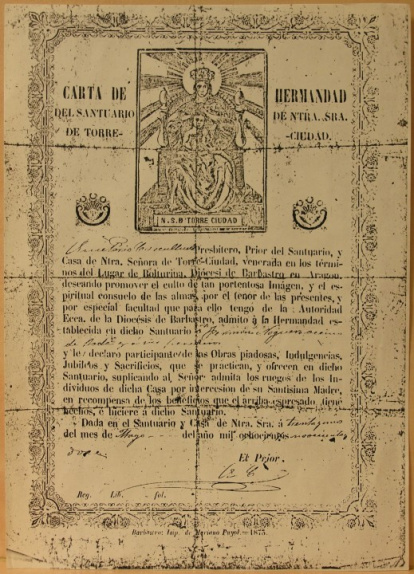 CARTA DE HERMANDAD
DEL SANTUARIO DE NTRA. SRA.
DE TORRE- -CIUDAD.
N. S. D TORRE CIUDAD
Presbítero, Prior del Santuario, y
Casa de Ntra. Señora de Torre-Ciudad, venerada en los térmi-
nos del Lugar de Bolturina, Diócesi de Barbastro en Aragon,
deseando promover el culto de tan portentosa Imágen, y el es-
piritual consuelo de las almas, por el tenor de las presentes, y
por especial facultad que para ello tengo de la Autoridad
Ecca. de la Diócesis de Barbastro, admito á la Hermandad es-
tablecida en dicho Santuario á
y le declaro participante de las Obras piadosas, Indulgencias,
Jubileos y Sacrificios, que se practican, y ofrecen en dicho
Santuario, suplicando al Señor admita los ruegos de los In-
dividuos de dicha Casa por intercesion de su Santísima Madre,
en recompensa de los beneficios que el arriba espresado tiene
hechos, é hiciere á dicho Santuario.
Dada en el Santuario y Casa de Ntra. Sra. á treinta y uno
del mes de Mayo del año mil ochocientos noventa y
dos
El Prior.
Reg. Lib. fol.
Barbastro: Imp. de Mariano Puyol.—1875.